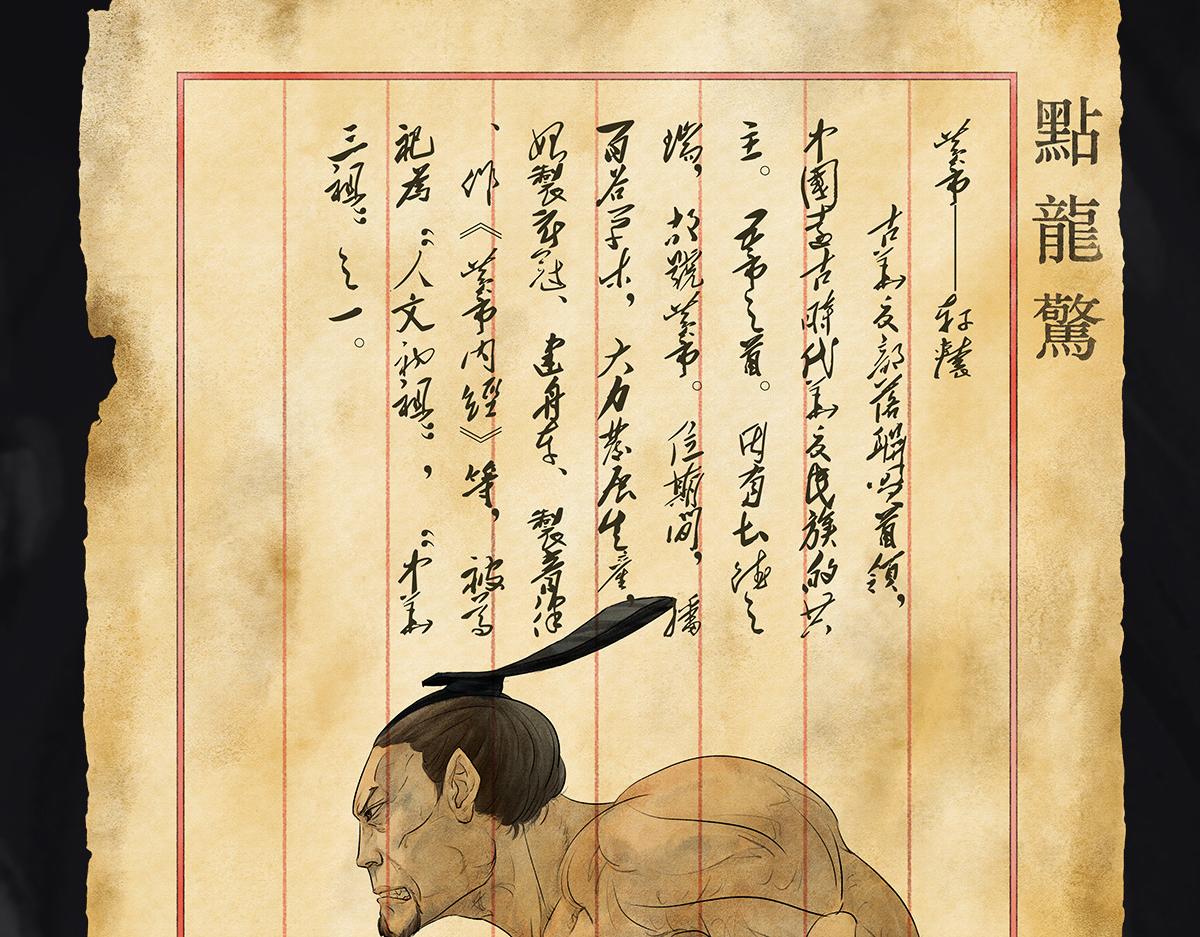 點龍驚
黄帝——軒轅
古華夏部落聯盟首領，
中國遠古時代華夏民族的共
主。五帝之首。因有土德之
瑞，故號黄帝。在位期間，播
百谷草木，大力發展生產，
始製衣冠、建舟車、製音律
、作《黄帝内經》等，被尊
祀為“人文初祖”，“中華
三祖”之一。